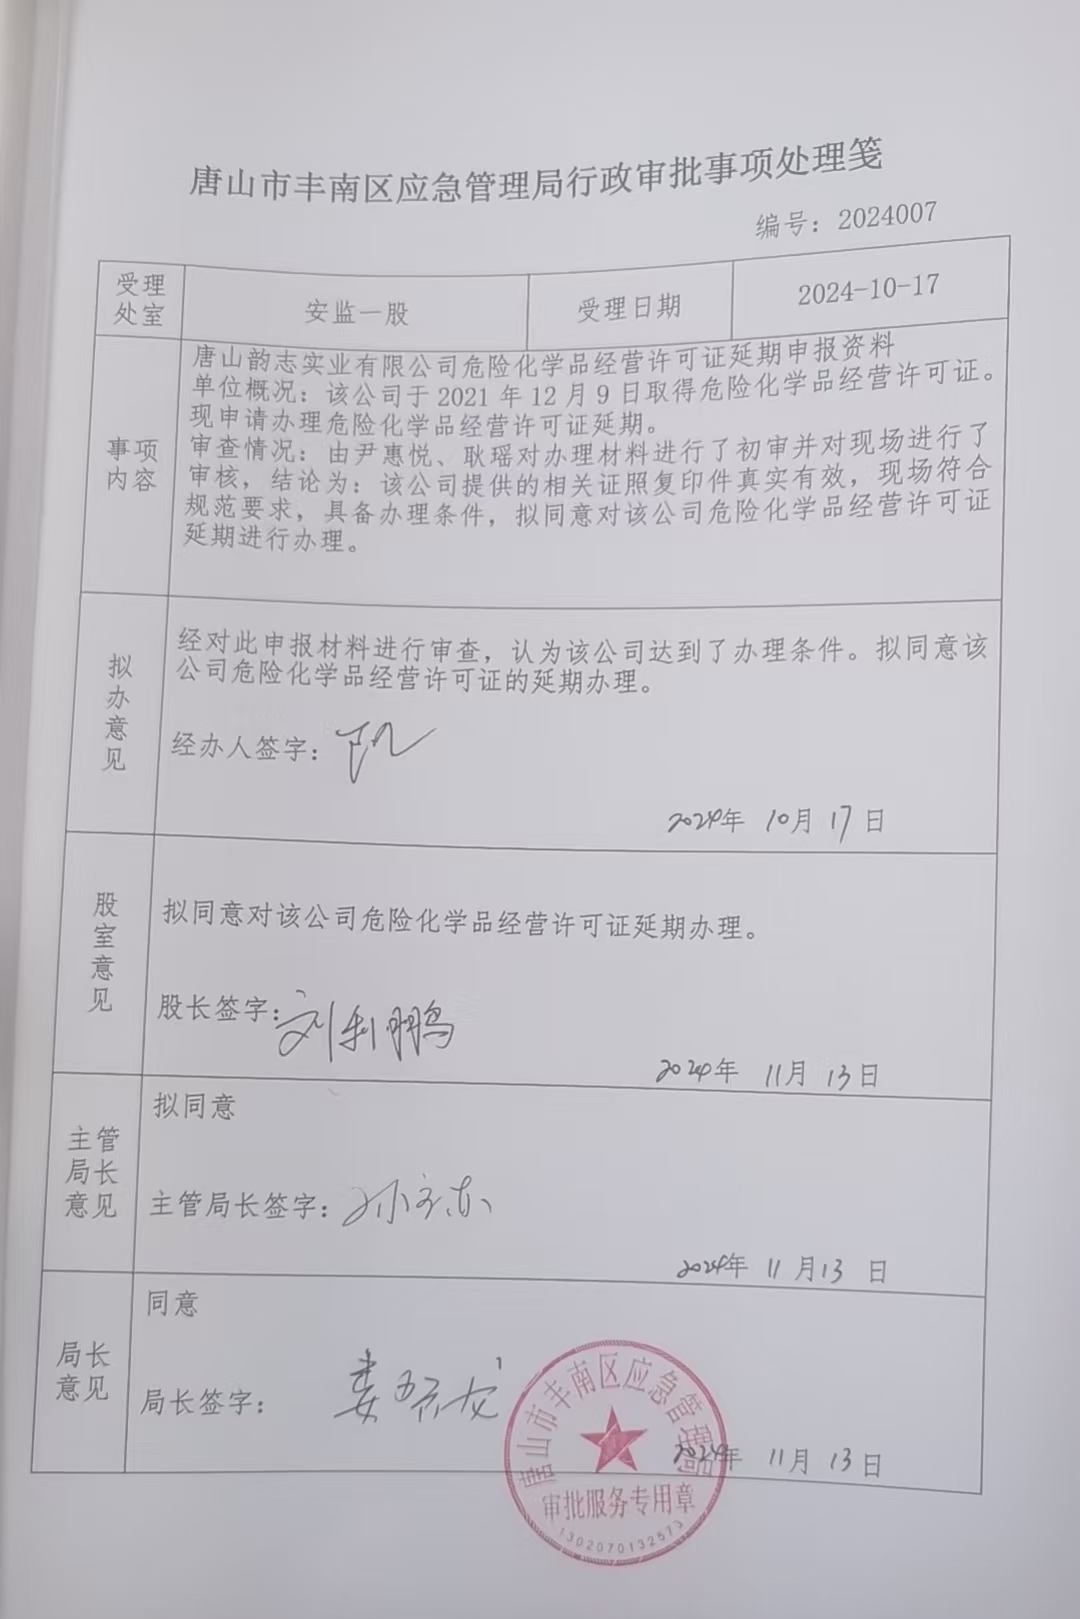 唐山市丰南区应急管理局行政审批事项处理笺
编号：2024007
受理处室
安监一股
受理日期
2024-10-17
事项内容
唐山韵志实业有限公司危险化学品经营许可证延期申报资料
单位概况：该公司于 2021 年 12 月 9 日取得危险化学品经营许可证。
现申请办理危险化学品经营许可证延期。
审查情况：由尹惠悦、耿瑶对办理材料进行了初审并对现场进行了
审核，结论为：该公司提供的相关证照复印件真实有效，现场符合
规范要求，具备办理条件，拟同意对该公司危险化学品经营许可证
延期进行办理。
拟办意见
经对此申报材料进行审查，认为该公司达到了办理条件。拟同意该
公司危险化学品经营许可证的延期办理。
经办人签字：
2024年 10月 17日
股室意见
拟同意对该公司危险化学品经营许可证延期办理。
股长签字：刘利鹏
2024年 11月 13日
主管局长意见
拟同意
主管局长签字：
2024年 11月 13日
局长意见
同意
局长签字：
2024年 11月 13日
唐山市丰南区应急管理局
审批服务专用章